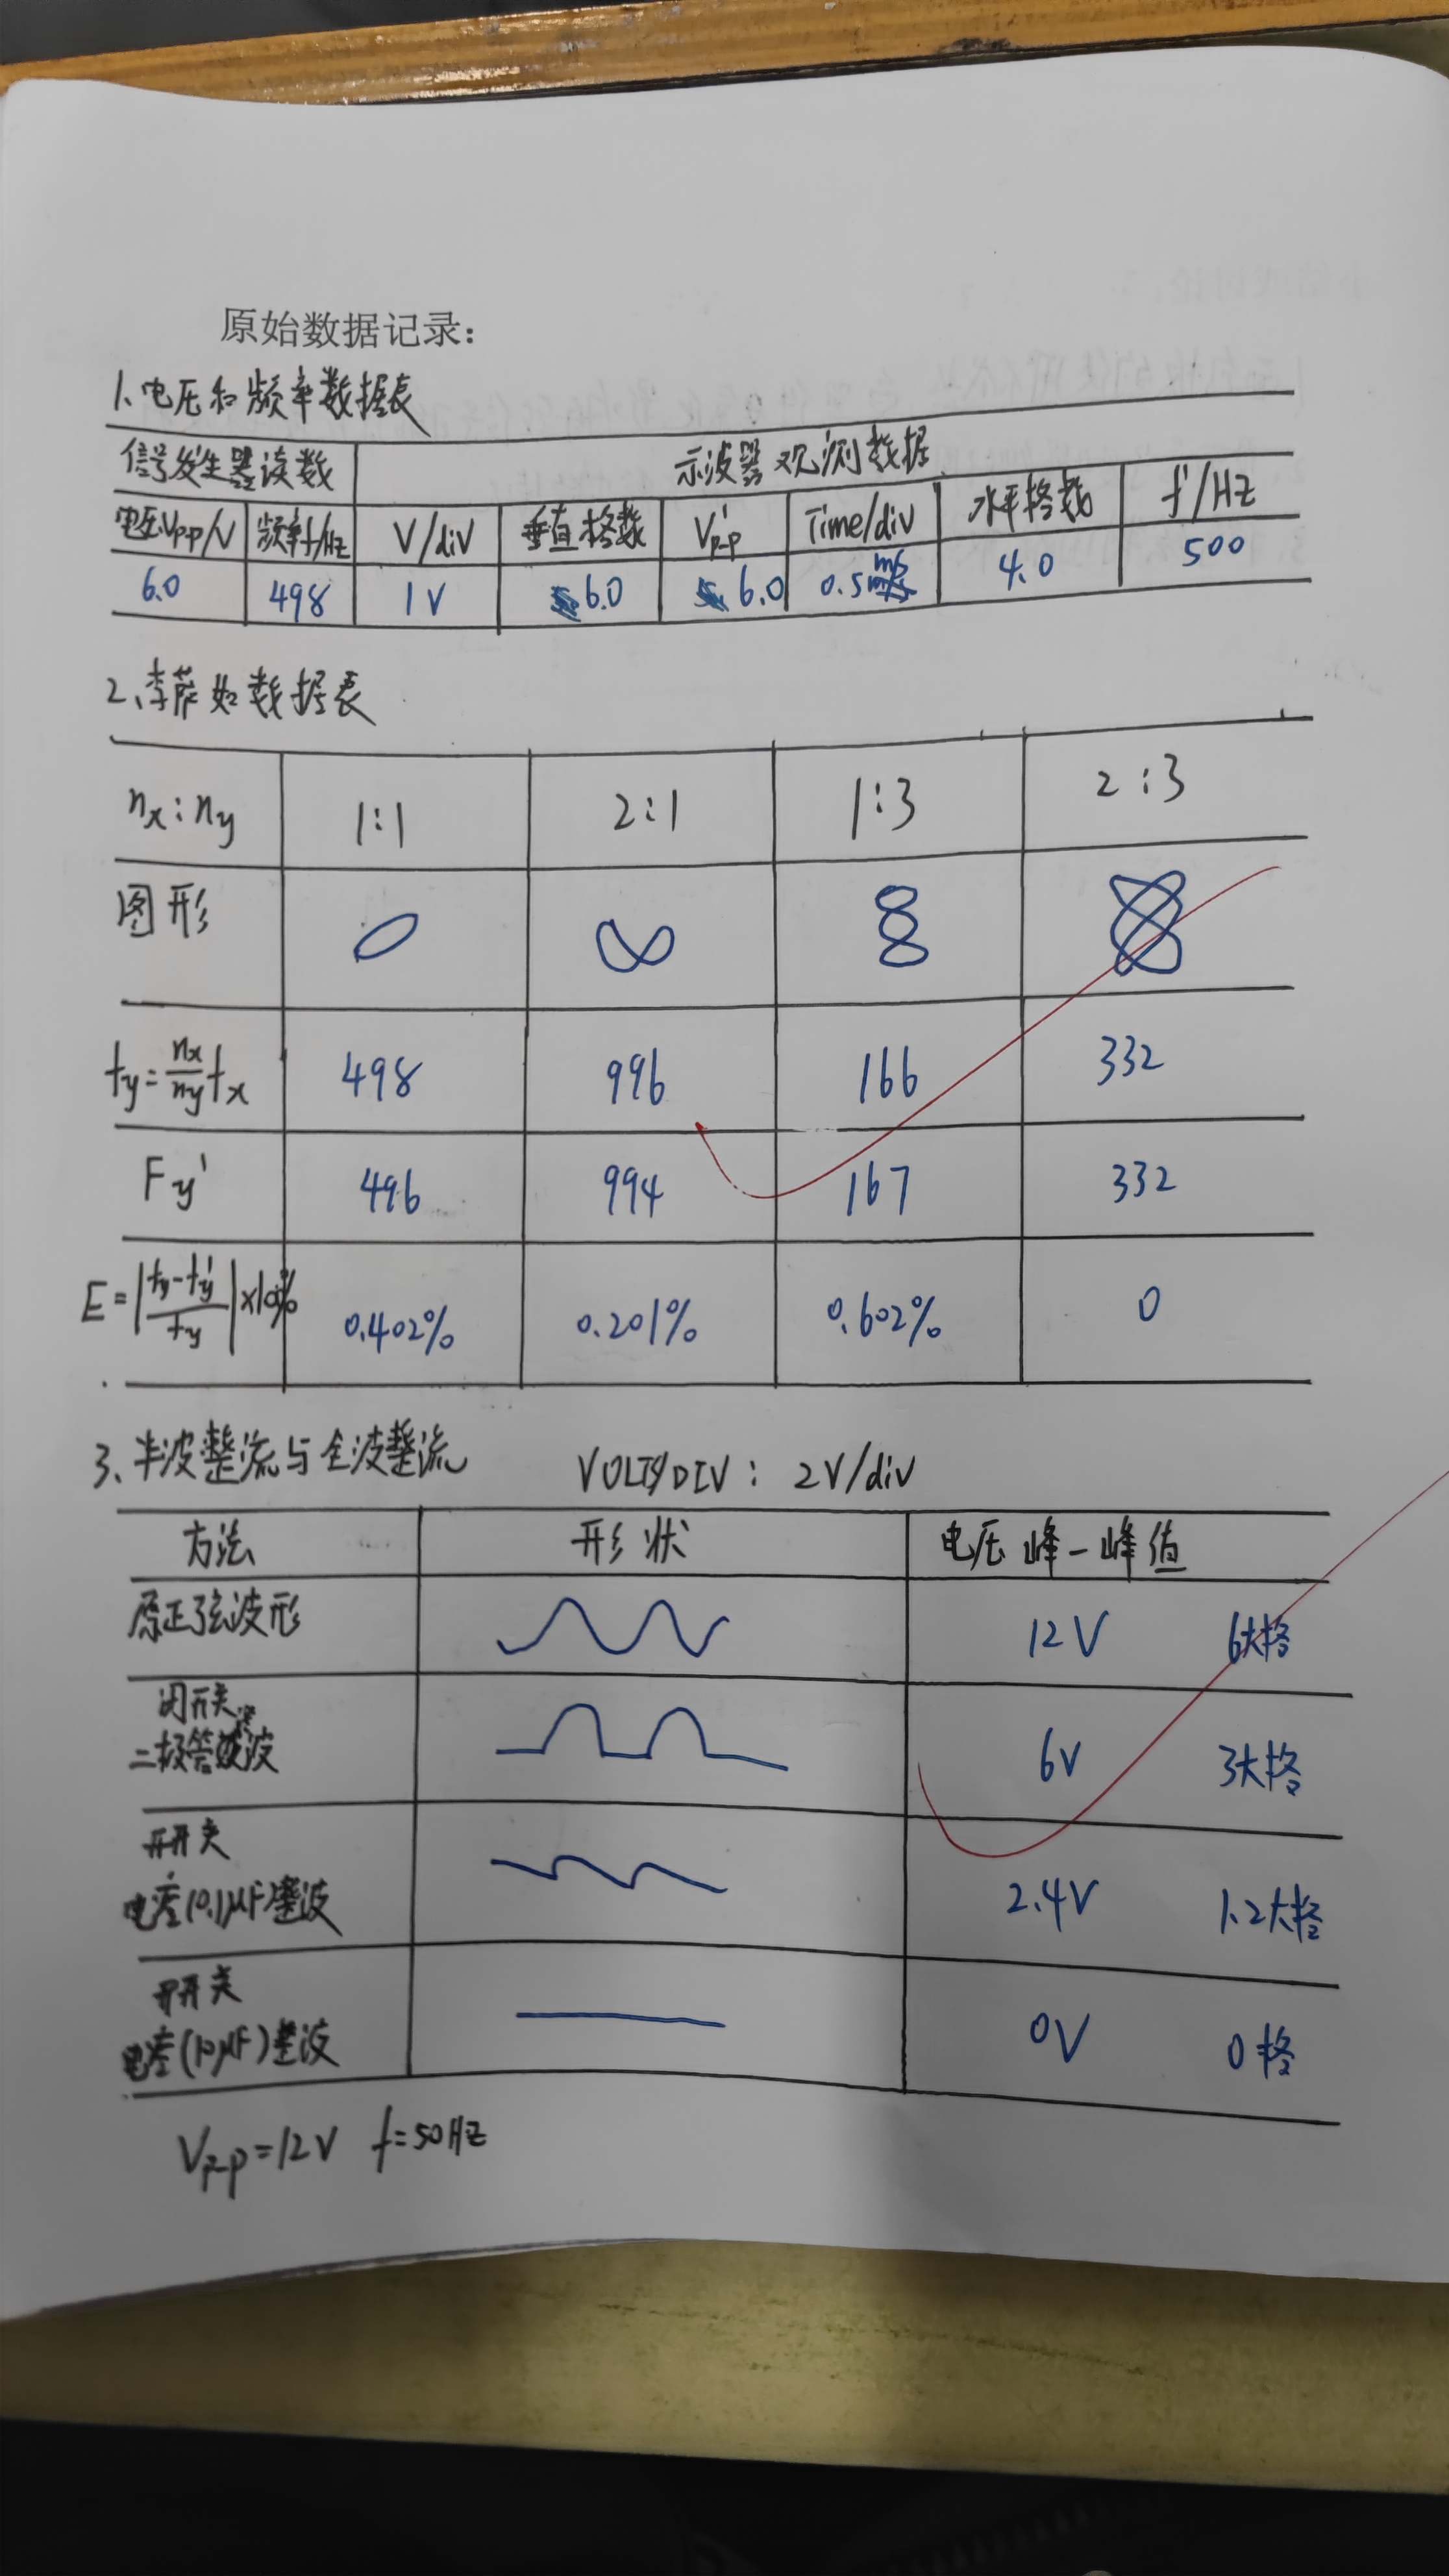 原始数据记录:
1、电压和频率数据表
信号发生器读数 示波器观测数据
电压Vp-p/V 频率f/Hz V/div 垂直格数 V'p-p Time/div 水平格数 f'/HZ
6.0 498 1V 6.0 6.0 0.5ms 4.0 500
2、李萨如数据表
nx:ny 1:1 2:1 1:3 2:3
图形
fy=nx/ny fx 498 996 166 332
Fy' 496 994 167 332
E=|fy-fy'/fy|×100% 0.402% 0.201% 0.602% 0
3、半波整流与全波整流 VOLTS/DIV: 2V/div
方法 形状 电压峰-峰值
原正弦波形 12V 6大格
闭开关
二极管整波 6V 3大格
开开关
电容(0.1μF)整波 2.4V 1.2大格
开开关
电容(10μF)整波 0V 0格
Vp-p=12V f=50HZ